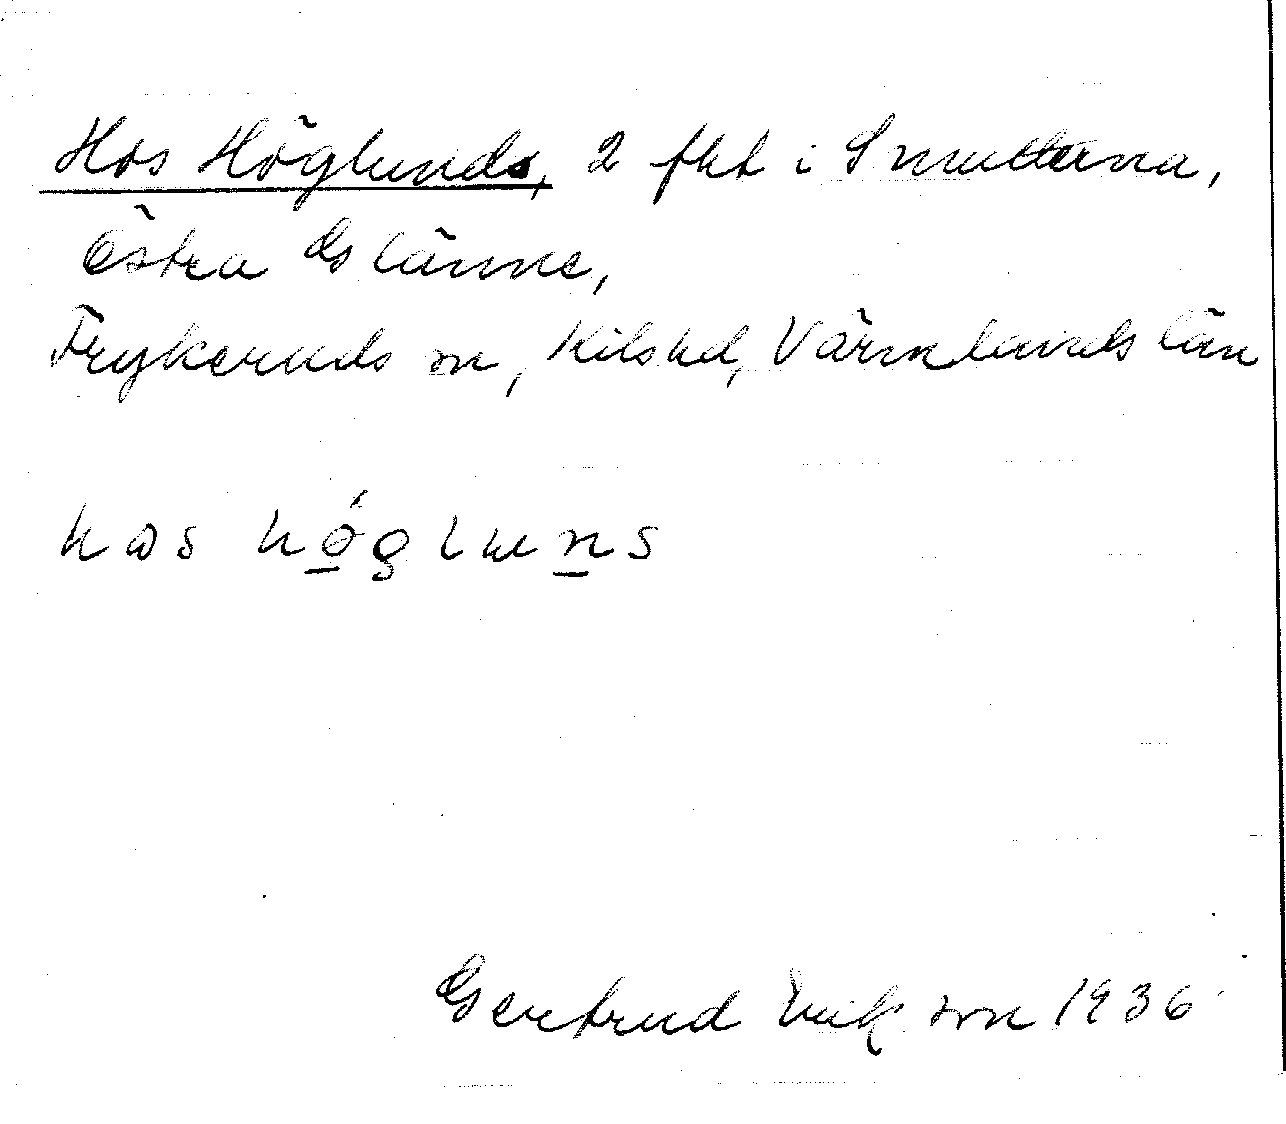 Hos Höglunds, 2 fht i Smulterna,
Östra Glänne,
Frykeruds sn, Kils hd, Värmlands län
hos hö́gluns
Gertrud Erikson 1936